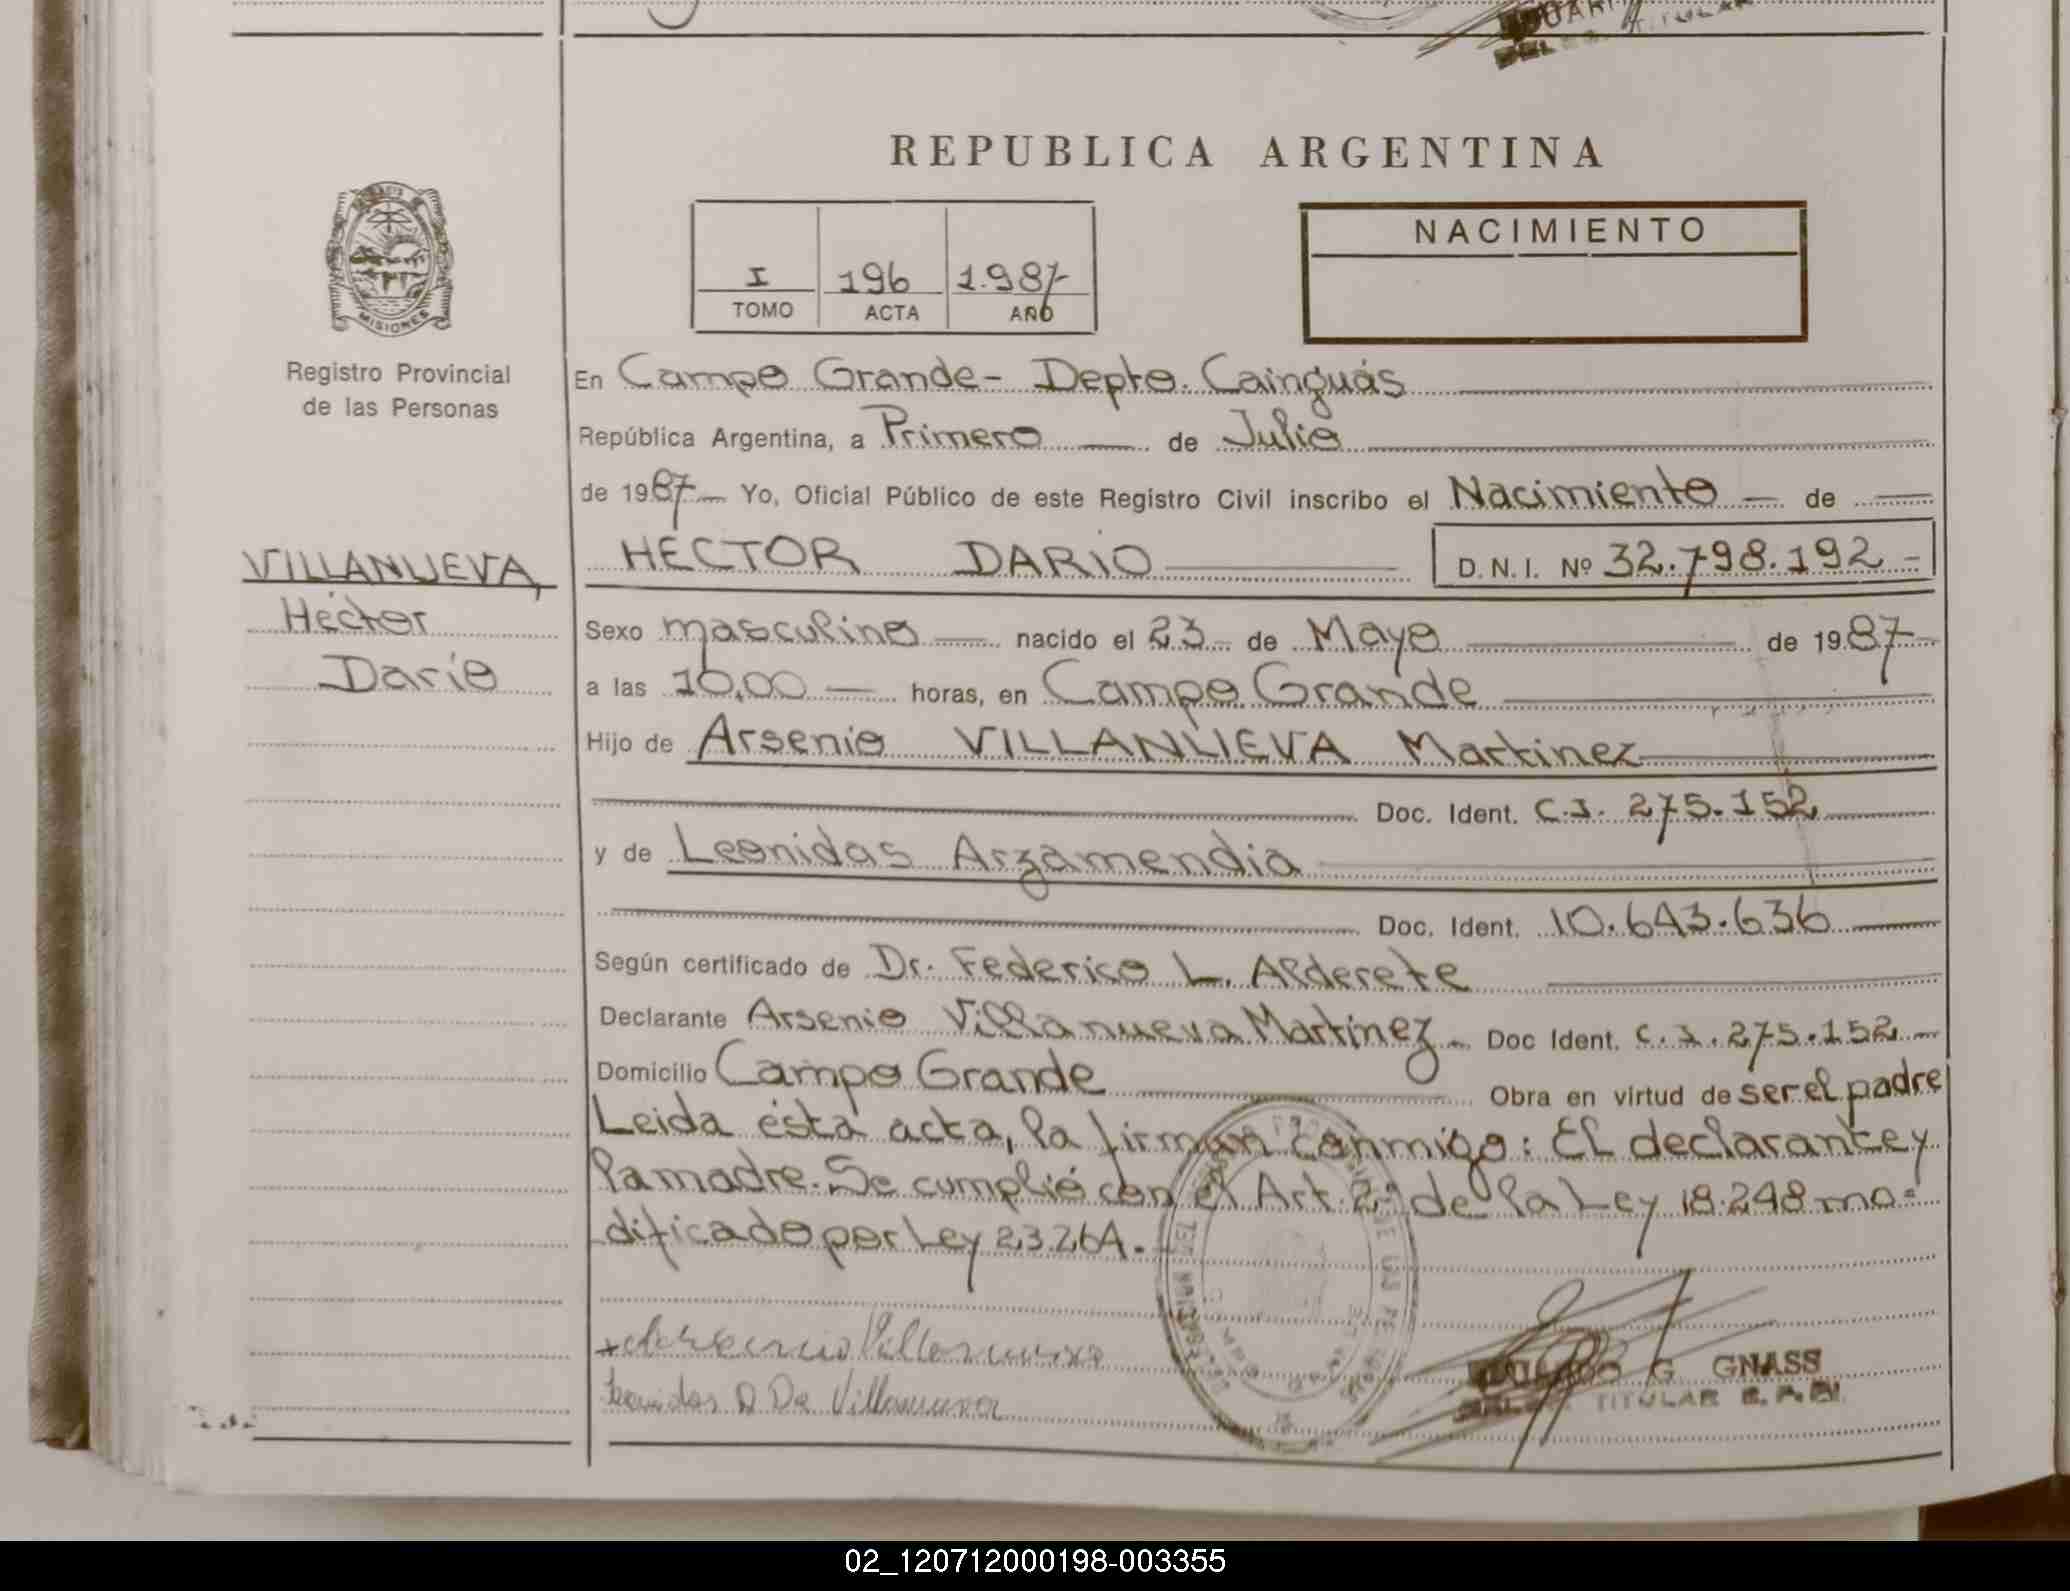 REPUBLICA ARGENTINA
MISIONES
Registro Provincial
de las Personas
I 196 1.987
TOMO ACTA AÑO
NACIMIENTO
En Campo Grande- Depto. Cainguás
República Argentina, a Primero — de Julio
de 1987 — Yo, Oficial Público de este Registro Civil inscribo el Nacimiento — de —
VILLANUEVA,
Héctor
Darío
HÉCTOR DARIO
D. N. I. Nº 32.798.192 -
Sexo masculino — nacido el 23 - de Mayo — de 1987 -
a las 10,00 — horas, en Campo Grande
Hijo de Arsenio VILLANUEVA Martinez
Doc. Ident. C.I. 275.152
y de Leonidas Arzamendia
Doc. Ident. 10.643.636
Según certificado de Dr. Federico L. Alderete
Declarante Arsenio Villanueva Martínez - Doc Ident. C.I. 275.152 -
Domicilio Campo Grande Obra en virtud de ser el padre
Leida ésta acta, la firman conmigo: El declarante y
la madre. Se cumplió con el Art. 2º de la Ley 18.248 mo=
dificado por Ley 23.264.
Villanueva
Leonidas A De Villanueva
G. GNASS
TITULAR
02_120712000198-003355